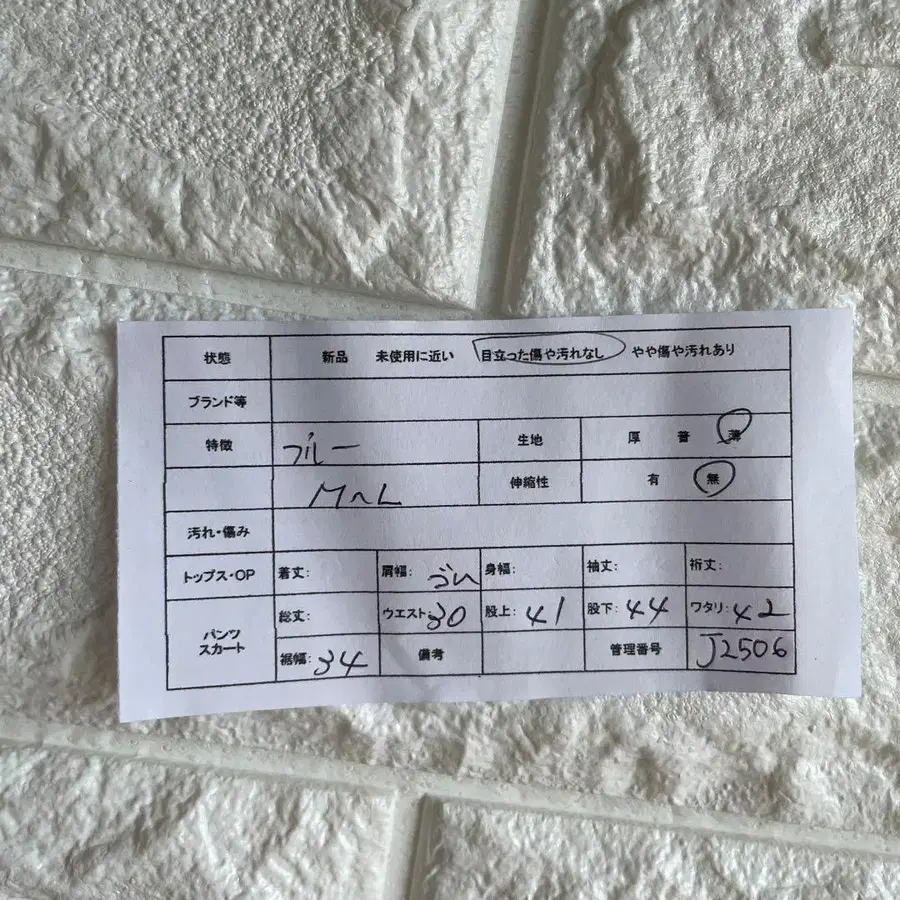 状態 新品 未使用に近い 目立った傷や汚れなし やや傷や汚れあり
ブランド等
特徴 ブルー 生地 厚 普 薄
M〜L 伸縮性 有 無
汚れ・傷み
トップス・OP 着丈: 肩幅: 身幅: 袖丈: 裄丈:
ゴム
パンツ スカート 総丈: ウエスト:30 股上:41 股下:44 ワタリ:42
裾幅:34 備考 管理番号 J2506